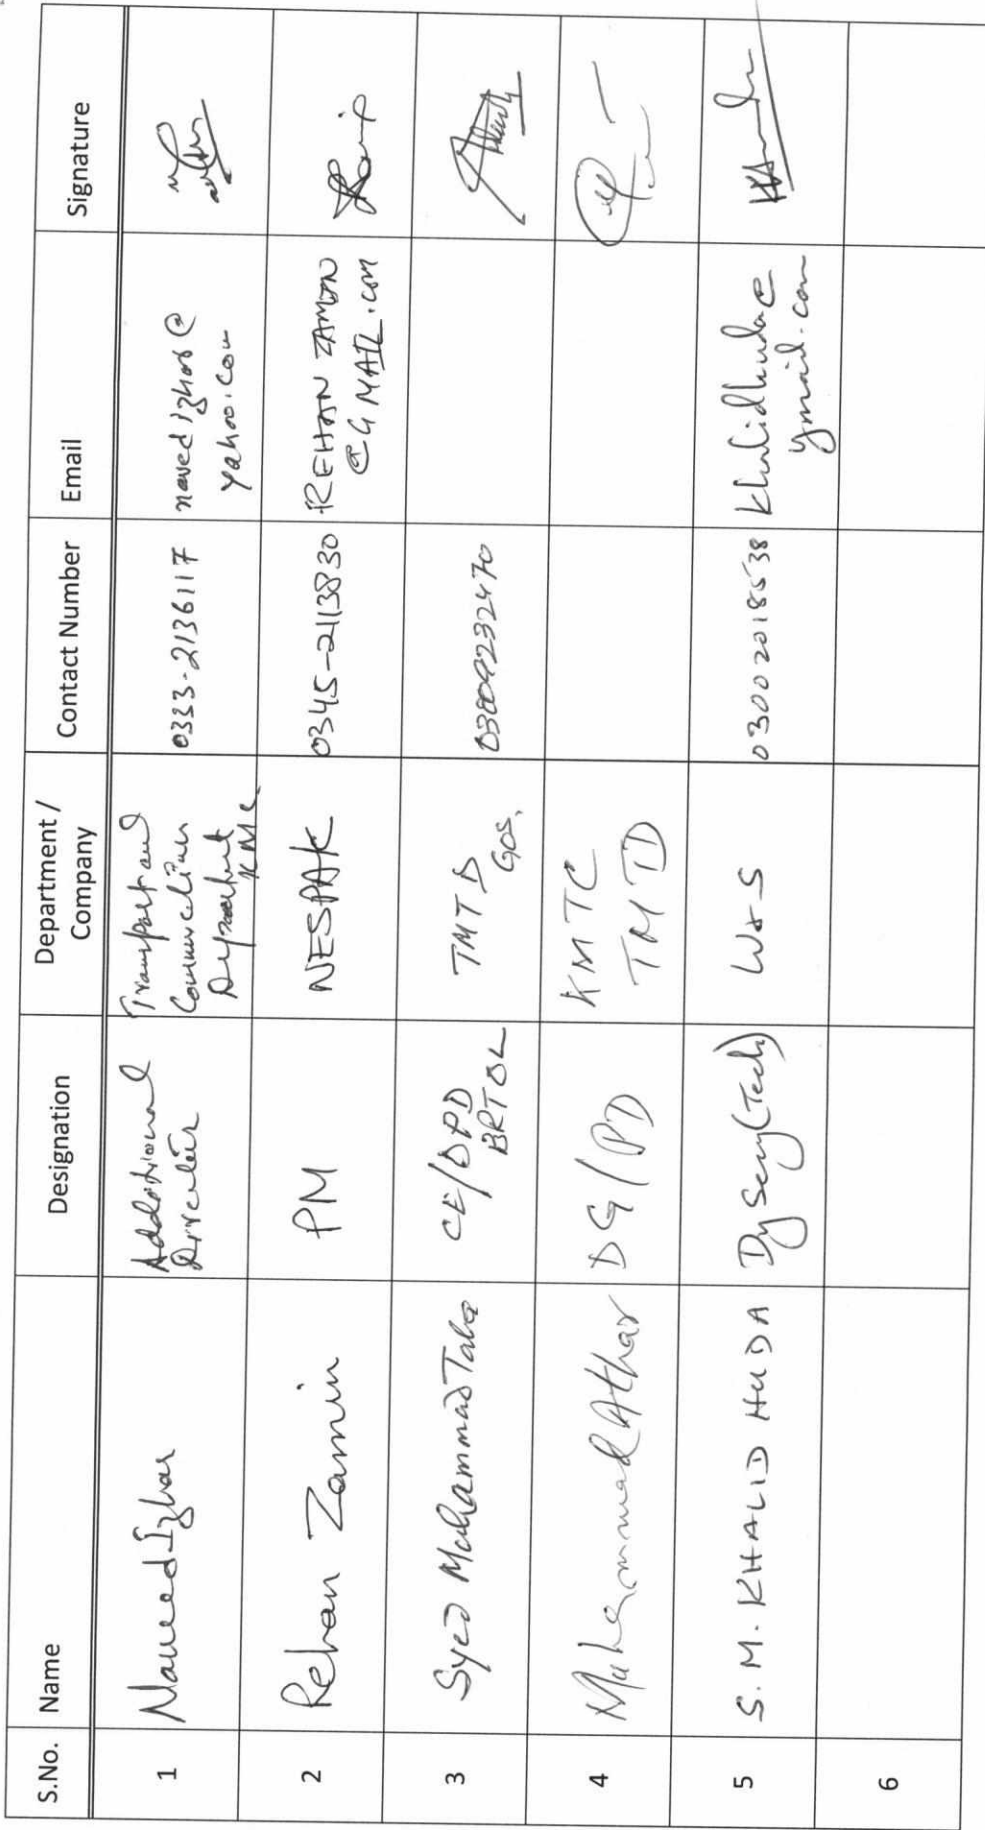 S.No. Name Designation Department / Company Contact Number Email Signature
1 Naveed Izhar Additional Director Transport and Communication Department KMC 0333-2136117 navedizhar@yahoo.com
2 Rehan Zamin PM NESPAK 0345-2113830 REHAN ZAMIN @GMAIL.COM
3 Syed Muhammad Taha CE/DPD BRTOL TMTD GOS. 03009232470
4 Muhammad Athar DG/PD KMTC TMTD
5 S.M. KHALID HUDA Dy Secy (Tech) W&S 03002018538 khalidhuda@ymail.com
6